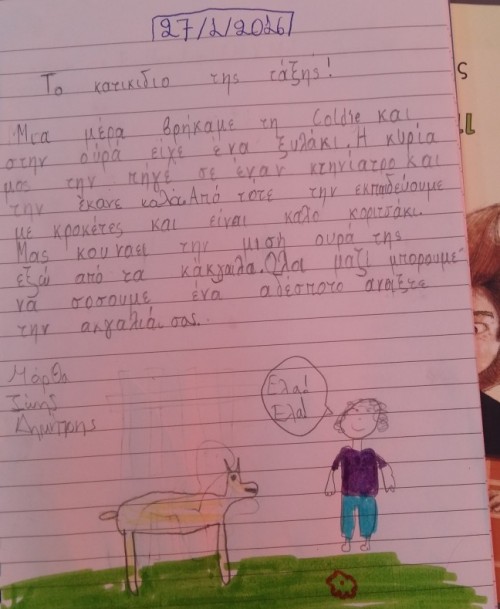 27/1/2026
Το κατικιδιο της τάξης!
Μια μέρα βρήκαμε τη Coldie και
στην ουρά είχε ένα ξυλάκι. Η κυρία
μας την πήγε σε έναν κτηνίατρο και
την έκανε καλά. Από τοτε την εκπαιδεύουμε
με κροκέτες και είναι καλο κοριτσάκι.
Μας κουναει την μιση ουρα της
εξω από τα κάκγαιλα. Ολοι μαζί μπορουμε
νά σοσουμε ένα αδέσποτο ανοιξτε
την αγγαλιάι σας.
Μάρθη
Ζώης
Δημητρης
Ελα!
Ελα!